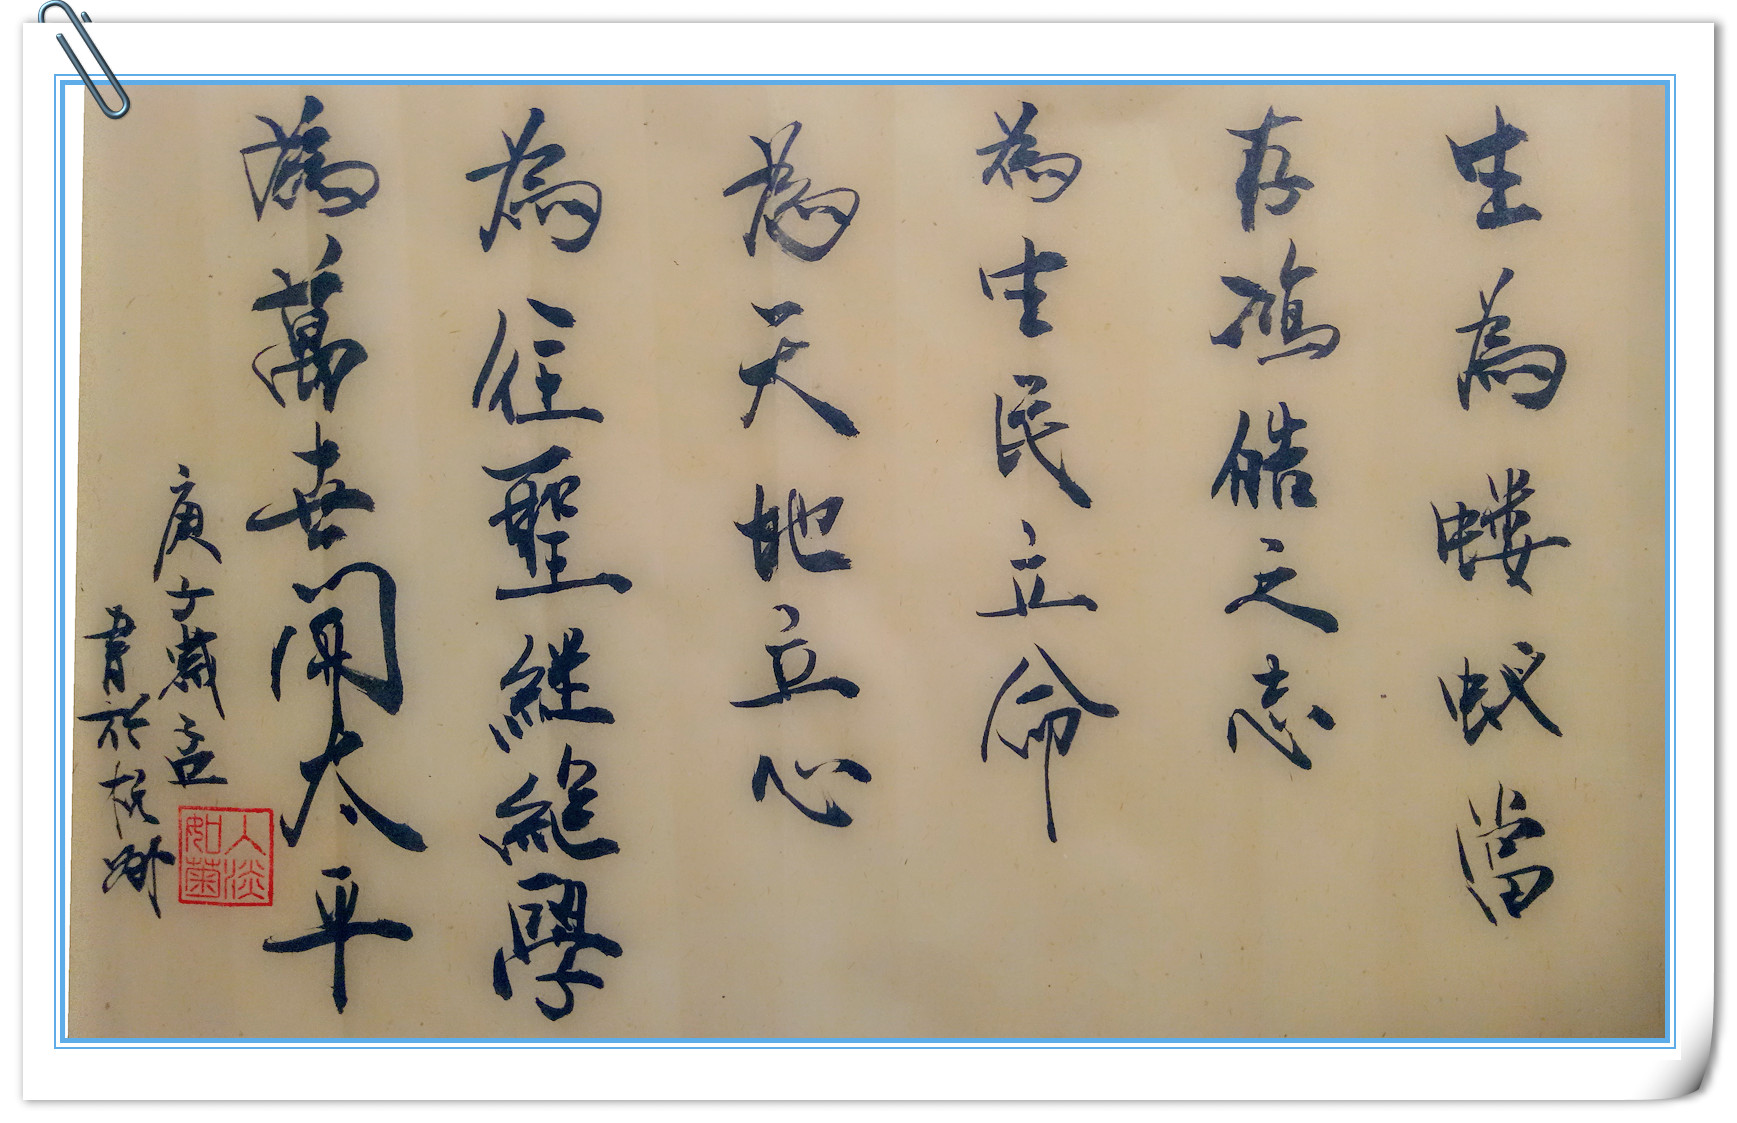 生為螻蚁當
存鴻皓之志
為生民立命
為天地立心
為往聖継絕學
為萬世開太平
庚子歲孟
書於杭州
人淡如菊